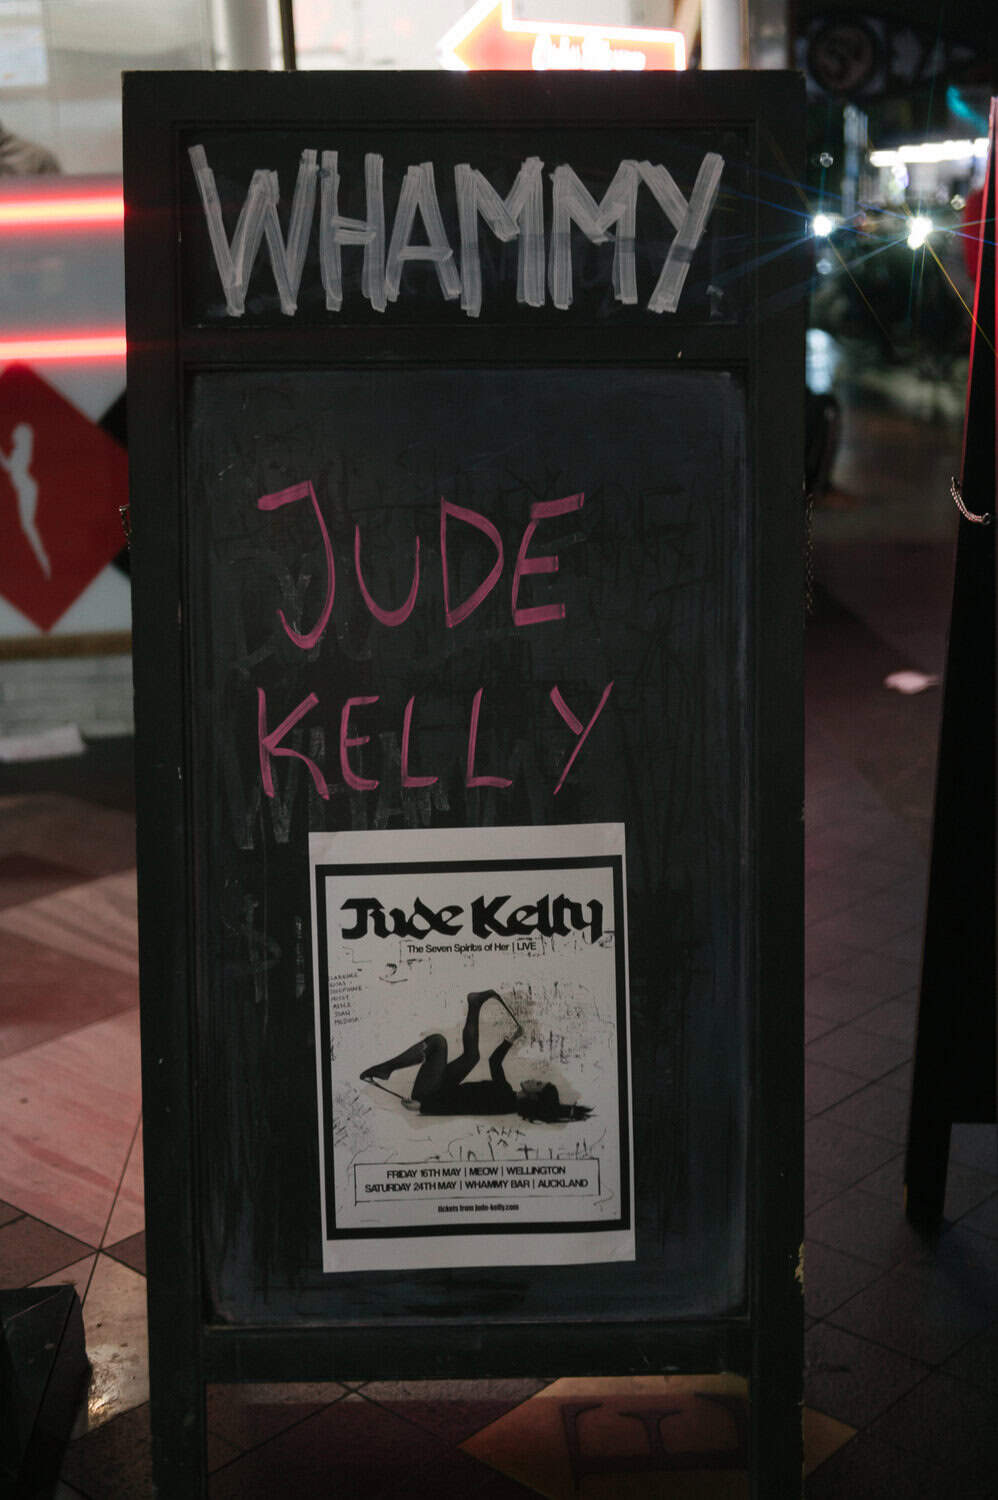 WHAMMY
JUDE
KELLY
Jude Kelly
The Seven Spirits of Her | LIVE
FRIDAY 16TH MAY | MEOW | WELLINGTON
SATURDAY 24TH MAY | WHAMMY BAR | AUCKLAND
tickets from jude-kelly.com
E